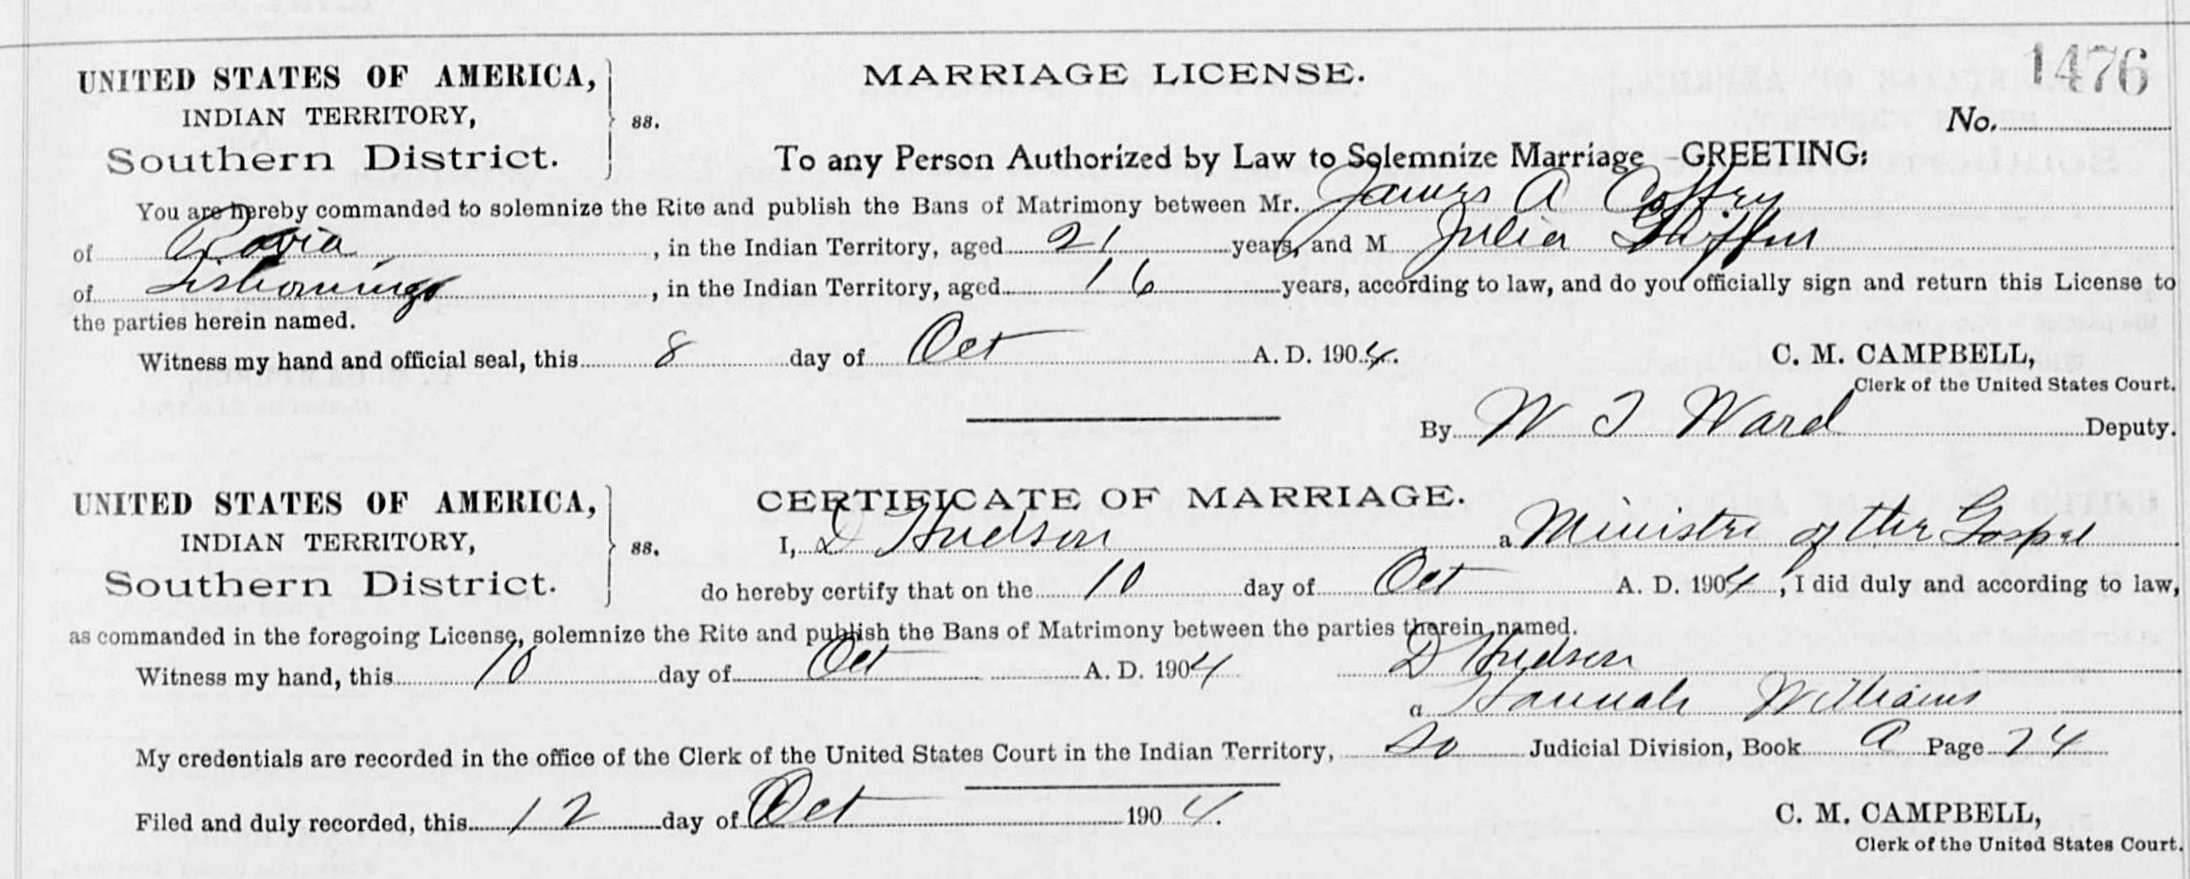 1476
UNITED STATES OF AMERICA,
INDIAN TERRITORY,
Southern District.
ss.
MARRIAGE LICENSE.
No.
To any Person Authorized by Law to Solemnize Marriage -GREETING:
You are hereby commanded to solemnize the Rite and publish the Bans of Matrimony between Mr. James A Coffey
of Ravia, in the Indian Territory, aged 21 years, and M Julia
of Tishomingo, in the Indian Territory, aged 16 years, according to law, and do you officially sign and return this License to
the parties herein named.
Witness my hand and official seal, this 8 day of Oct A. D. 1904.
C. M. CAMPBELL,
Clerk of the United States Court.
By W T Ward Deputy.
UNITED STATES OF AMERICA,
INDIAN TERRITORY,
Southern District.
ss.
CERTIFICATE OF MARRIAGE.
I, D Hudson a Ministre of the Gospel
do hereby certify that on the 10 day of Oct A. D. 1904, I did duly and according to law,
as commanded in the foregoing License, solemnize the Rite and publish the Bans of Matrimony between the parties therein named.
Witness my hand, this 10 day of Oct A. D. 1904 D Hudson
a Hannah Williams
My credentials are recorded in the office of the Clerk of the United States Court in the Indian Territory, So Judicial Division, Book A Page 74
Filed and duly recorded, this 12 day of Oct 1904.
C. M. CAMPBELL,
Clerk of the United States Court.